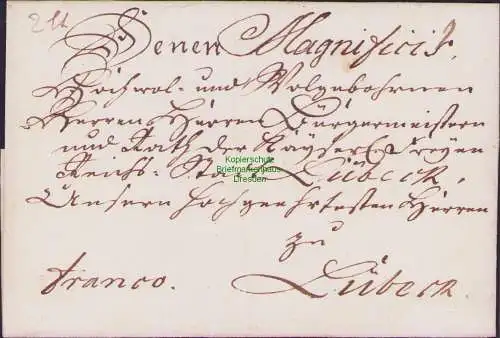 Denen Magnificis,
Hochwol- und Wolgebohrnen
Herren Herren Bürgermeistern
und Rath der Kayserl. Freyen
Reichs-Stadt Lübeck,
Unsern hochgeehrtesten Herren
zu
franco. Lübeck.
Kopierschutz
Briefmarkenhaus
Dresden